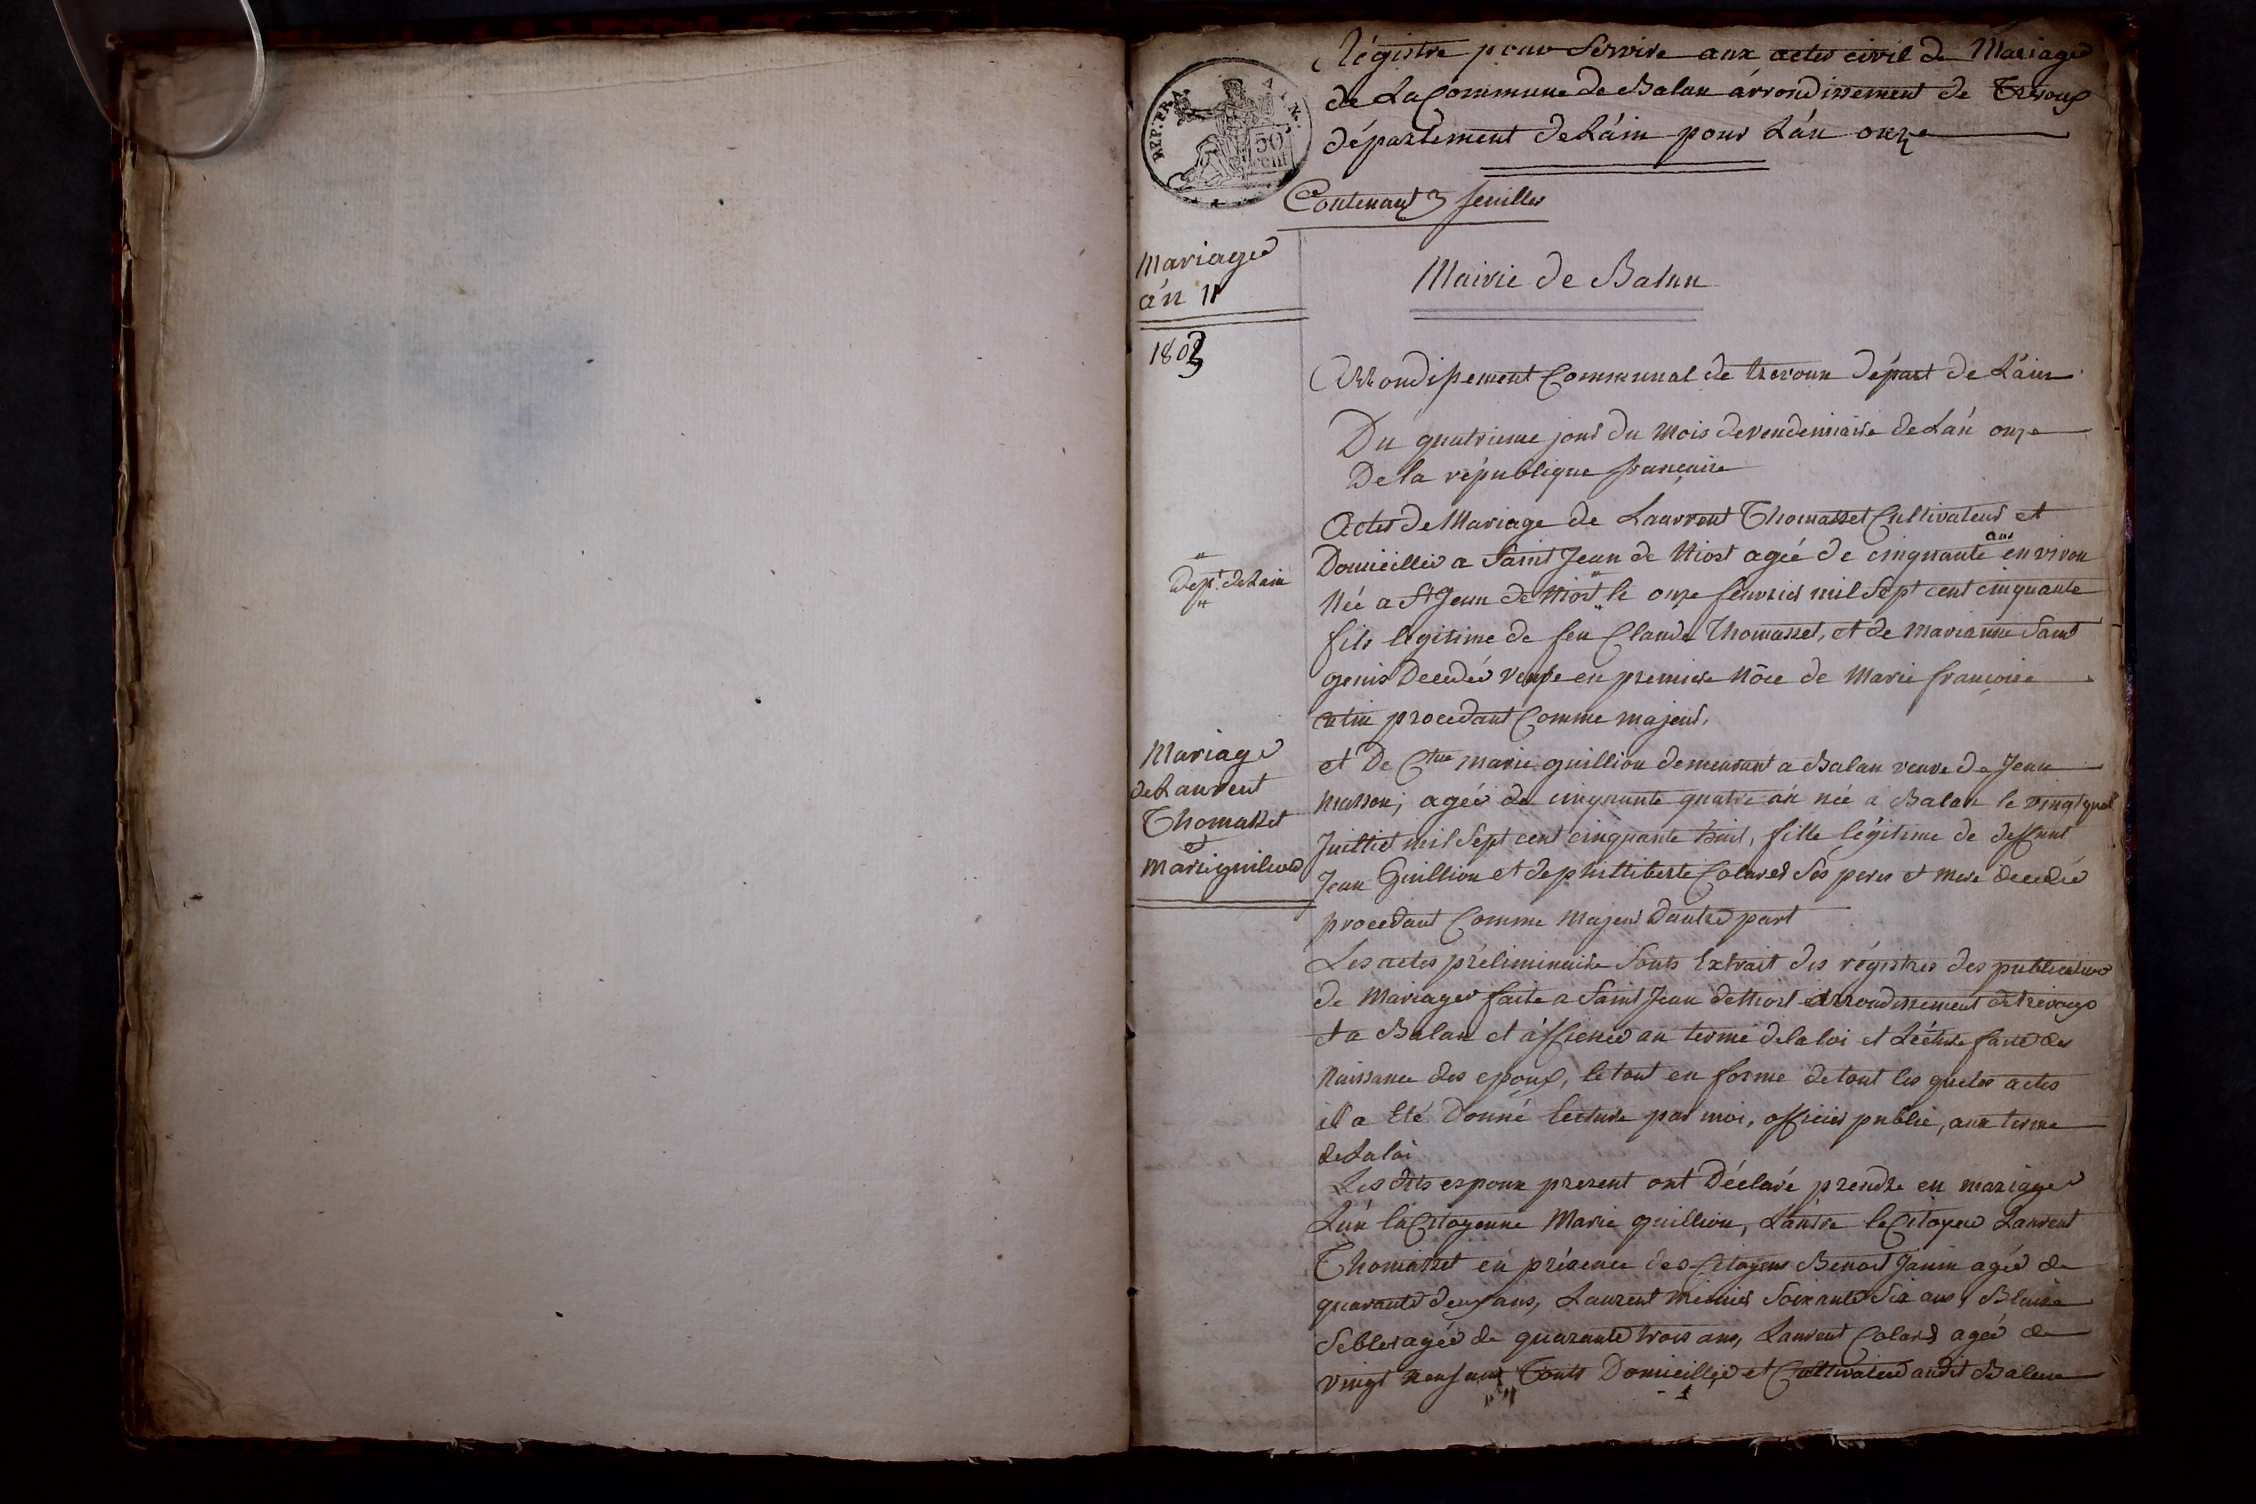 Régistre pour Servire aux actes civil de Mariages
de La Commune de Balan arrondissement de Trevoux
département de Láin pour Lán onze
REP. FRA. AIN.
50 Cent
Contenant 3 feuilles
Mariages
án 11
1803
Mairie de Balan
Arrondissement Communal de trevoux Départ de Láin
Du quatrieme jour du mois de vendemiaire de Lán onze
De la république française
Actes de Mariage de Laurent Thomasset Cultivateur et
Domicillié a Saint Jean de Niost ageé de cinquante ans environ
Dept. de Lain
Née a St Jean de Niost le onze fevrier mil Sept cent cinquante
fils légitime de feu Claude Thomasset, et de marianne Saint
genis Decedée veufe en premiere nôce de Marie françoise
procedant Comme majeur,
Mariage
de Laurent
Thomasset
et
Marie guillion
et De Cne marie guillion demeurant a Balan veuve de Jean
Masson, ageé de cinquante quatre án née a Balan le vingt
Juillet mil Sept cent cinquante huit, fille légitime de deffunt
Jean Guillion et de phillliberte Colard Ses peres et mere decedée
procedant Comme Majeur Dautre part
Les actes préliminaire Sonts Extrait des régistres des publications
de Mariages faite a Saint Jean de Niost arrondissement de trevoux
et a Balan et áffichée au terme de la loi et Lécture faite des
Naissance des epoux, le tout en forme de tout les quelles actes
il a Eté Donné lecture par moi, officier public, aux terme
de La loi
Les dits espoux present ont Déclaré prendre en mariage
Lún la Citoyenne Marie guillion, Láutre le Citoyen Laurent
Thomasset en présence des Citoyens Benoit Janin agée de
quarante deux ans, Laurent Soixante Six ans, Blaise
ageé de quarante trois ans, Laurent Colard ageé de
vingt neuf ans Touts Domicillié et Cultivateur audit Balan